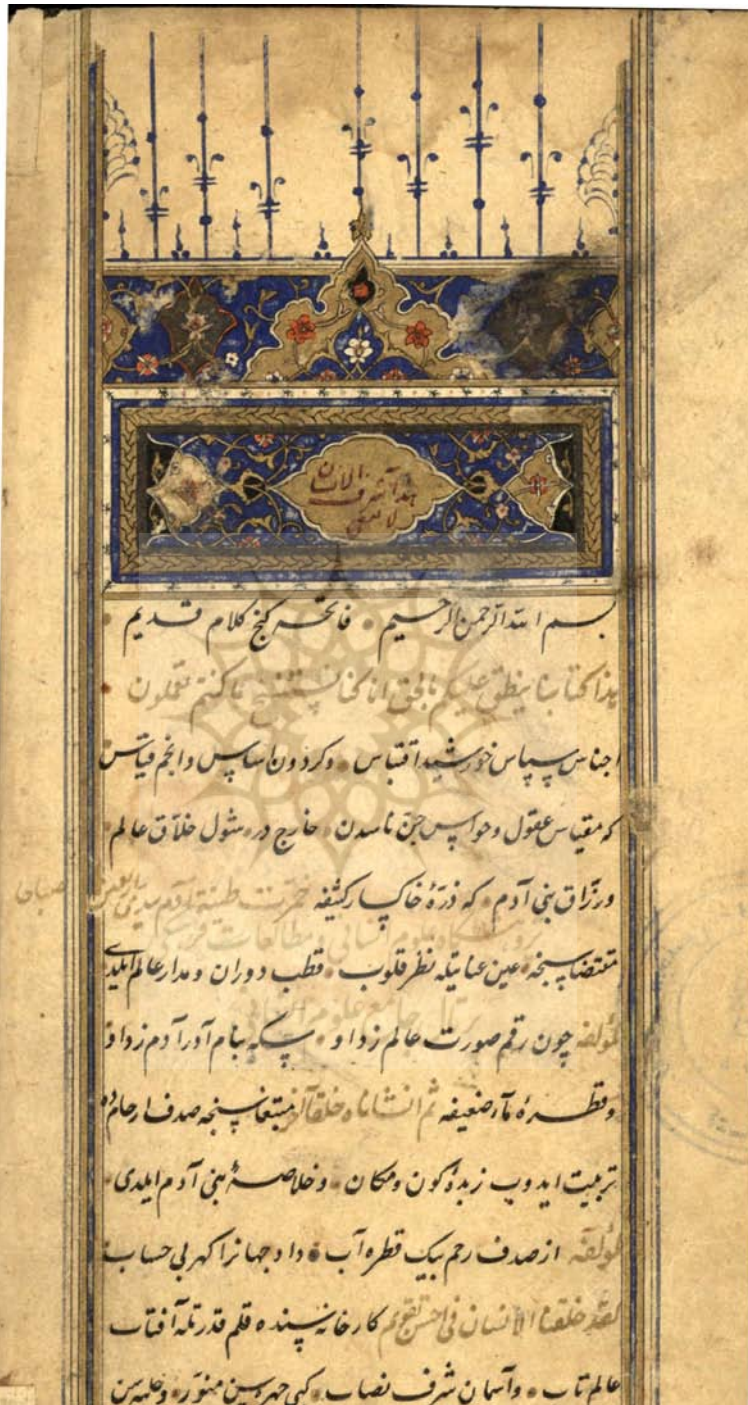 هذا شرف الانسان
لامعی
بسم الله الرحمن الرحیم • فاتحۀ کنج کلام قدیم •
هذا کتابنا ینطق علیکم بالحق انا کنا نستنسخ ما کنتم تعملون
اجناس سپاس خورشید اقتباس • و کردون اساس و انجم قیاس
که مقیاس عقول و حواس جن ناسدن • خارج در • شول خلاق عالم •
و رزاق بنی آدم • که ذرۀ خاکسار کثیفه خمرت طینة آدم بیدی اربعین صباحا
مقتضاسنجه • عین عنایتله نظر قلوب • قطب دوران و مدار عالم ایلدی
لمؤلفه چون رقم صورت عالم زد او • سکه بنام آدر آدم زد او
و قطرۀ ماء ضعیفه ثم انشاناه خلقا آخر مبتغاسنجه صدف ارحامده
تربیت ایدوب زبدۀ کون و مکان • و خلاصۀ بنی آدم ایلدی •
لمؤلفه از صدف رحم بیک قطره آب • داد جهانرا کهر بی حساب
لقد خلقنا الانسان فی احسن تقویم کارخانه سنده قلم قدرتله آفتاب
عالم تاب • و آسمان شرف نصاب • کبی چهره سین منور • و حله سن